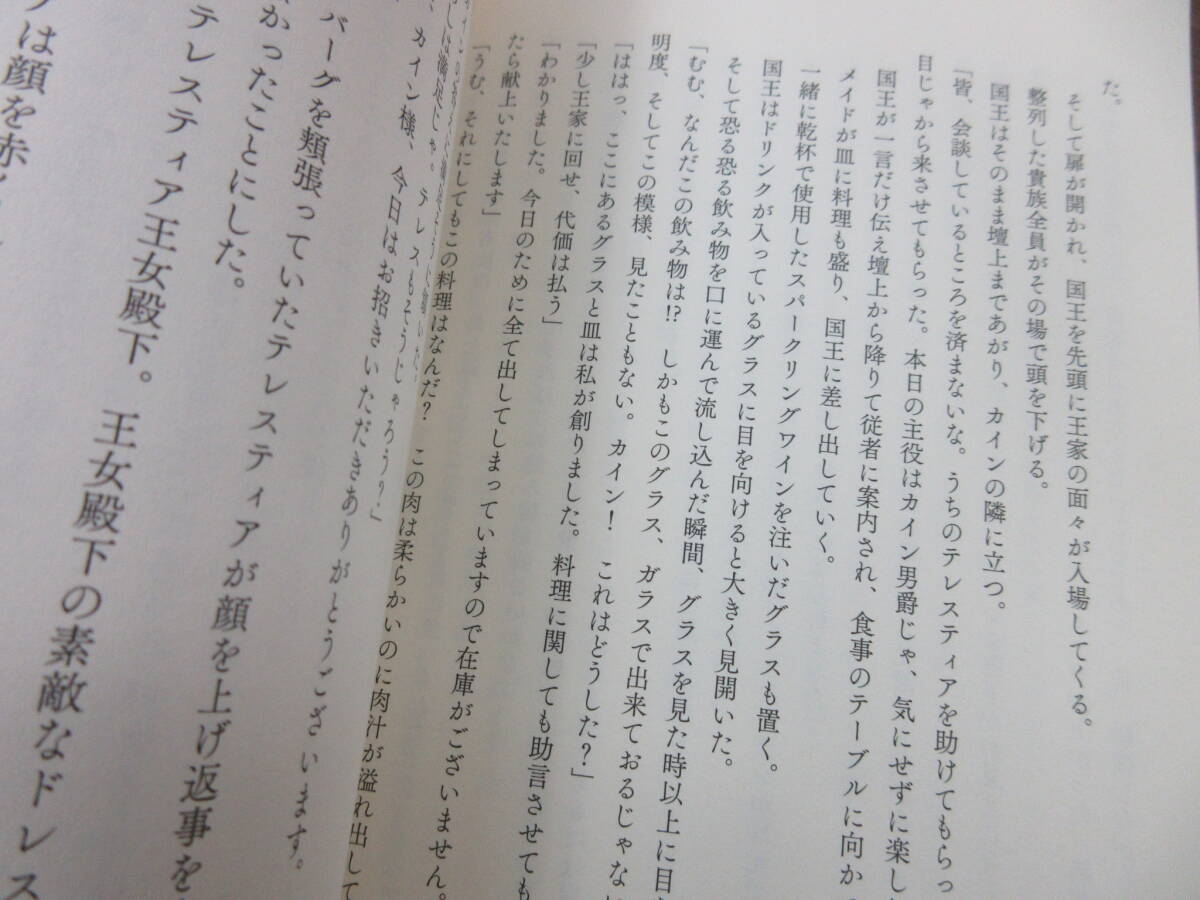 た。
そして扉が開かれ、国王を先頭に王家の面々が入場してくる。
整列した貴族全員がその場で頭を下げる。
国王はそのまま壇上まであがり、カインの隣に立つ。
「皆、会談しているところを済まないな。うちのテレスティアを助けてもらっ
目じゃから来させてもらった。本日の主役はカイン男爵じゃ、気にせずに楽し
国王が一言だけ伝え壇上から降りて従者に案内され、食事のテーブルに向か
メイドが皿に料理も盛り、国王に差し出していく。
一緒に乾杯で使用したスパークリングワインを注いだグラスも置く。
国王はドリンクが入っているグラスに目を向けると大きく見開いた。
そして恐る恐る飲み物を口に運んで流し込んだ瞬間、グラスを見た時以上に目
「むむ、なんだこの飲み物は!?　しかもこのグラス、ガラスで出来ておるじゃな
明度、そしてこの模様、見たこともない。カイン！　これはどうした？」
「ははっ、ここにあるグラスと皿は私が創りました。料理に関しても助言させても
「少し王家に回せ、代価は払う」
「わかりました。今日のために全て出してしまっていますので在庫がございません。
たら献上いたします」
「うむ、それにしてもこの料理はなんだ？　この肉は柔らかいのに肉汁が溢れ出して
テレスもそうじゃろう？」
カイン様、今日はお招きいただきありがとうございます。
バーグを頬張っていたテレスティアが顔を上げ返事を
かったことにした。
テレスティア王女殿下。王女殿下の素敵なドレス
は顔を赤